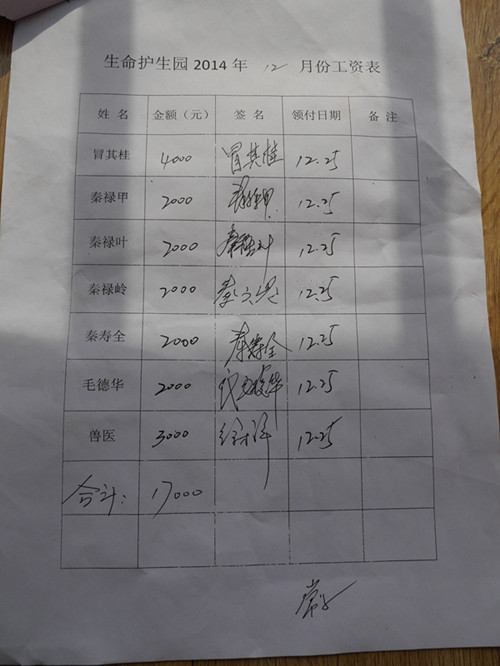 生命护生园2014年 12 月份工资表
姓 名 金额（元） 签 名 领付日期 备 注
冒其桂 4000 冒其桂 12.25
秦禄甲 2000 秦禄甲 12.25
秦禄叶 2000 秦禄叶 12.25
秦禄岭 2000 12.25
秦寿全 2000 秦寿全 12.25
毛德华 2000 12.25
兽医 3000 12.25
合计: 17000